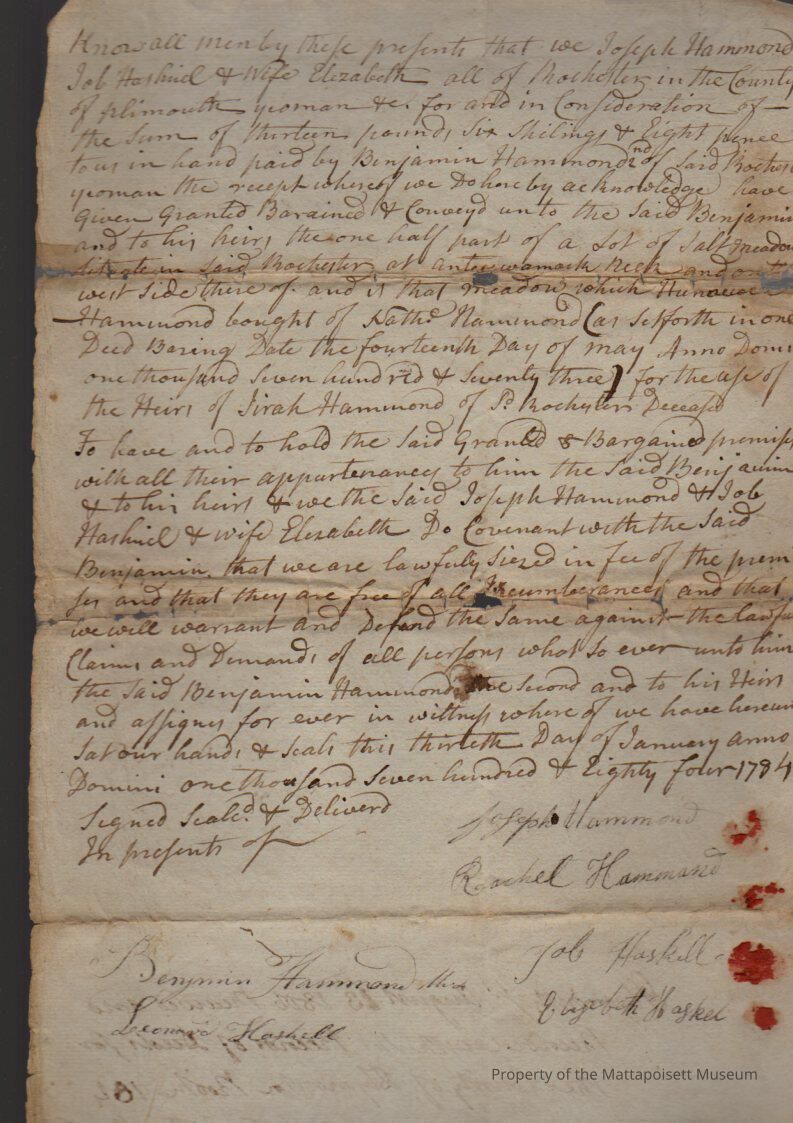 Know all men by these presents that we Joseph Hammond
Job Haskiel & Wife Elizabeth all of Rochester in the County
of plimouth yoman &c. for and in Consideration of
the Sum of thirteen pounds Six Shilings & Eight pence
to us in hand paid by Benjamin Hammond 2nd of Said Rochester
yoman the recept whereof we Do hereby acknowledge have
Given Granted Barained & Conveyd unto the Said Benjamin
and to his heirs the one half part of a Lot of Salt meadow
in Said Rochester at neck and on
west Side there of and is that meadow which
Hammond bought of Nathl Hammond (as Setforth in one
Deed Baring Date the fourteenth Day of may Anno Domi
one thousand Seven hundred & Seventy three) for the use of
the Heirs of Jirah Hammond of Sd Rochester Deceased
To have and to hold the Said Granted & Bargained premises
with all their appurtenances to him the Said Benjamin
& to his heirs & we the Said Joseph Hammond & Job
Haskiel & wife Elesabeth Do Covenant with the Said
Benjamin that we are lawfully Siezed in fee of the prem
ses and that they are free of all Incumberances and that
we will warrant and Defend the Same against the lawfu
Claims and Demands of all persons what So ever unto him
the Said Benjamin Hammond the Second and to his Heirs
and assigns for ever in wittness where of we have hereun
Sat our hands & Seals this thirtieth Day of January anno
Domini one thousand Seven hundred & Eighty four 1784
Signed Seald & Deliverd
In presents of
Joseph Hammond
Rachel Hammond
Job Haskell
Elizabeth Haskel
Benjmin Hammond
Haskell
Property of the Mattapoisett Museum